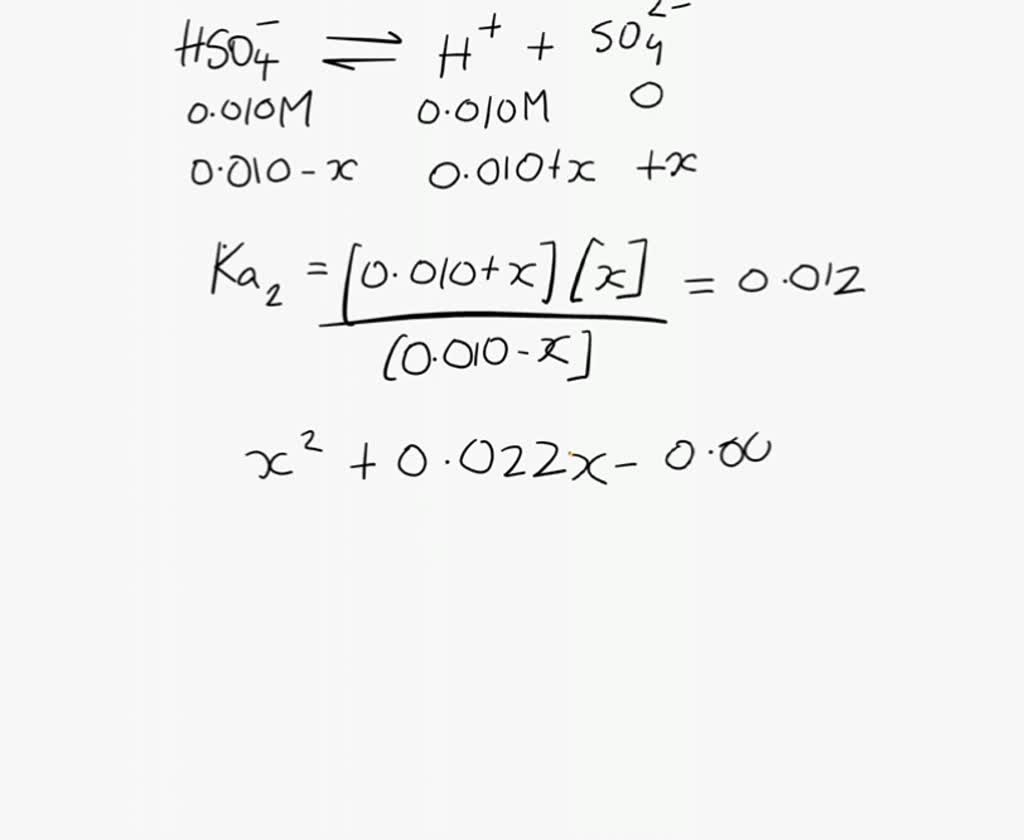 HSO₄⁻ ⇌ H⁺ + SO₄²⁻
0.010M 0.010M 0
0.010-x 0.010+x +x
Ka₂ = [0.010+x][x] = 0.012
(0.010-x]
x² + 0.022x - 0.00